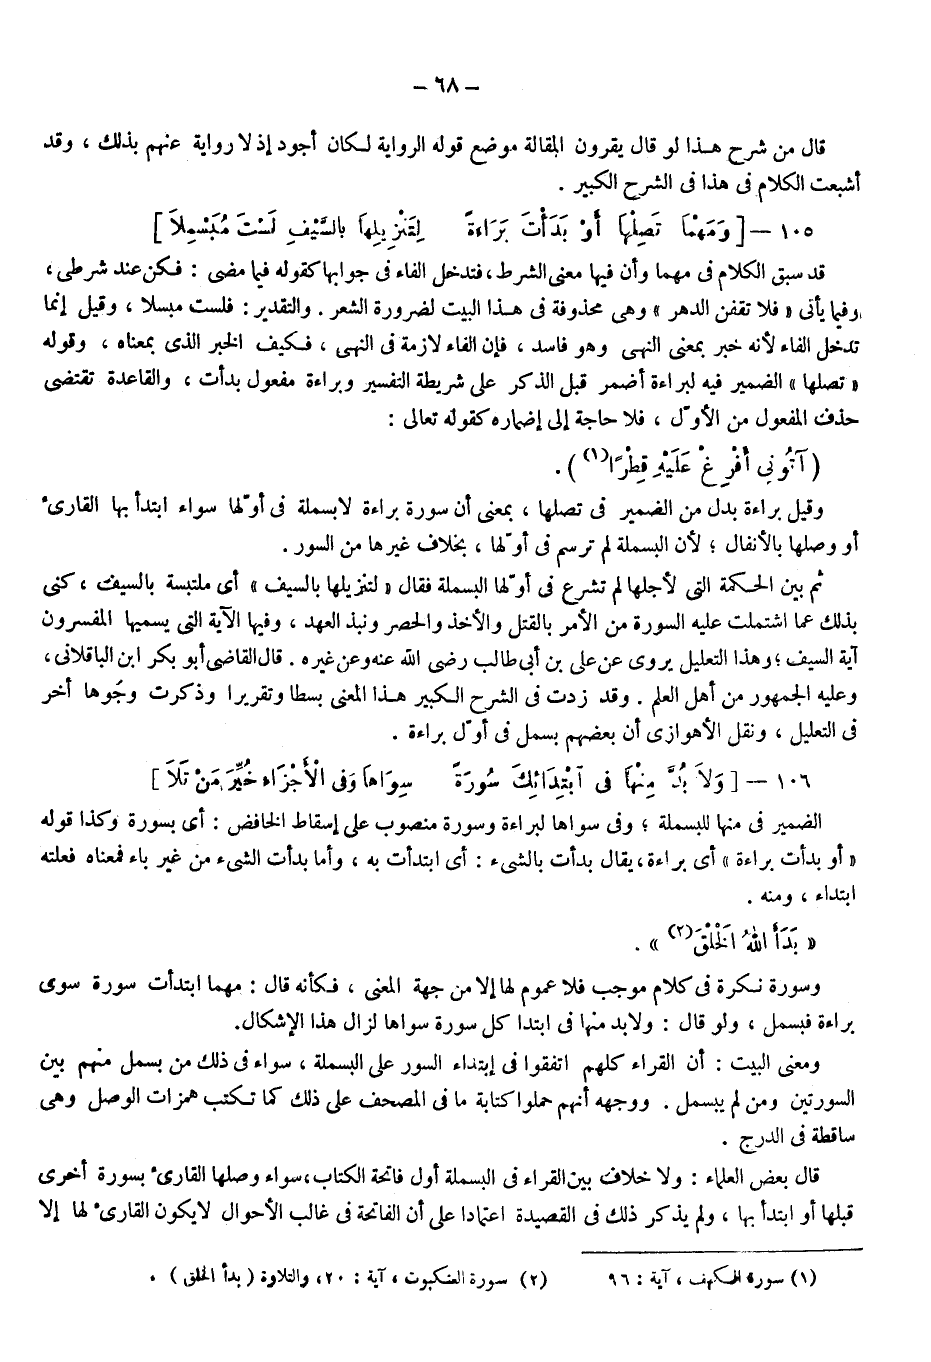 – ٦٨ –
قال من شرح هـذا لو قال يقرون المقالة موضع قوله الرواية لـكان أجود إذ لا رواية عنهم بذلك ، وقد
أشبعت الكلام فى هذا فى الشرح الكبير .
١٠٥ – [ وَمَهْمَا تَصِلْهَا أَوْ بَدَأْتَ بَرَاءَةً لِتَنْزِيلِهاَ بالسَّيْفِ لَسْتَ مُبَسْمِلاَ ]
قد سبق الكلام فى مهما وأن فيها معنى الشرط ، فتدخل الفاء فى جوابها كقوله فيما مضى : فـكن عند شرطى ،
وفيما يأتى « فلا تقفن الدهر » وهى محذوفة فى هـذا البيت لضرورة الشعر . والتقدير : فلست مبسلا ، وقيل إنما
تدخل الفاء لأنه خبر بمعنى النهـى وهو فاسد ، فإن الفاء لازمة فى النهـى ، فـكيف الخبر الذى بمعناه ، وقوله
« تصلها » الضمير فيه لبراءة أضمر قبل الذكر على شريطة التفسير وبراءة مفعول بدأت ، والقاعدة تقتضى
حذف المفعول من الأوّل ، فلا حاجة إلى إضماره كقوله تعالى :
( آتُونِى أُفْرِغْ عَلَيْهِ قِطْرًا(١) ) .
وقيل براءة بدل من الضمير فى تصلها ، بمعنى أن سورة براءة لابسملة فى أوّلها سواء ابتدأ بها القارىء
أو وصلها بالأنفال ؛ لأن البسملة لم ترسم فى أوّلها ، بخلاف غيرها من السور .
ثم بين الحـكمة التى لأجلها لم تشرع فى أوّلها البسملة فقال « لتنزيلها بالسيف » أى ملتبسة بالسيف ، كنى
بذلك عما اشتملت عليه السورة من الأمر بالقتل والأخذ والحصر ونبذ العهد ، وفيها الآية التى يسميها المفسرون
آية السيف ؛ وهذا التعليل يروى عن على بن أبى طالب رضى الله عنه وعن غيره . قال القاضى أبو بكر ابن الباقلانى ،
وعليه الجمهور من أهل العلم . وقد زدت فى الشرح الـكبير هـذا المعنى بسطا وتقريرا وذكرت وجُوها أخر
فى التعليل ، ونقل الأهوازى أن بعضهم بسمل فى أوّل براءة .
١٠٦ – [ وَلاَ بُدَّ مِنْهاَ فى ابْتِدَائِكَ سُورَةً سِوَاهاَ وَفى الْأَجْزَاء خُيِّرَ مَنْ تَلاَ ]
الضمير فى منها للبسملة ؛ وفى سواها لبراءة وسورة منصوب على إسقاط الخافض : أى بسورة وكذا قوله
« أو بدأت براءة » أى براءة ، يقال بدأت بالشىء : أى ابتدأت به ، وأما بدأت الشىء من غير باء فمعناه فعلته
ابتداء ، ومنه .
« بَدَأَ اللهُ الْخَلْقَ(٢) » .
وسورة نـكرة فى كلام موجب فلا عموم لها إلا من جهة المعنى ، فـكأنه قال : مهما ابتدأت سورة سوى
براءة فبسمل ، ولو قال : ولابد منها فى ابتدا كل سورة سواها لزال هذا الإشكال.
ومعنى البيت : أن القراء كلهم اتفقوا فى إبتداء السور على البسملة ، سواء فى ذلك من بسمل منهم بين
السورتين ومن لم يبسمل . ووجهه أنهم حملوا كتابة ما فى المصحف على ذلك كما تـكتب همزات الوصل وهى
ساقطة فى الدرج .
قال بعض العلماء : ولا خلاف بين القراء فى البسملة أول فاتحة الكتاب ، سواء وصلها القارىء بسورة أخرى
قبلها أو ابتدأ بها ، ولم يذكر ذلك فى القصيدة اعتمادا على أن الفاتحة فى غالب الأحوال لايكون القارىء لها إلا
(١) سورة الـكهف ، آية : ٩٦ (٢) سورة العنكبوت ، آية : ٢٠، والتلاوة ( بدأ الخلق ) .